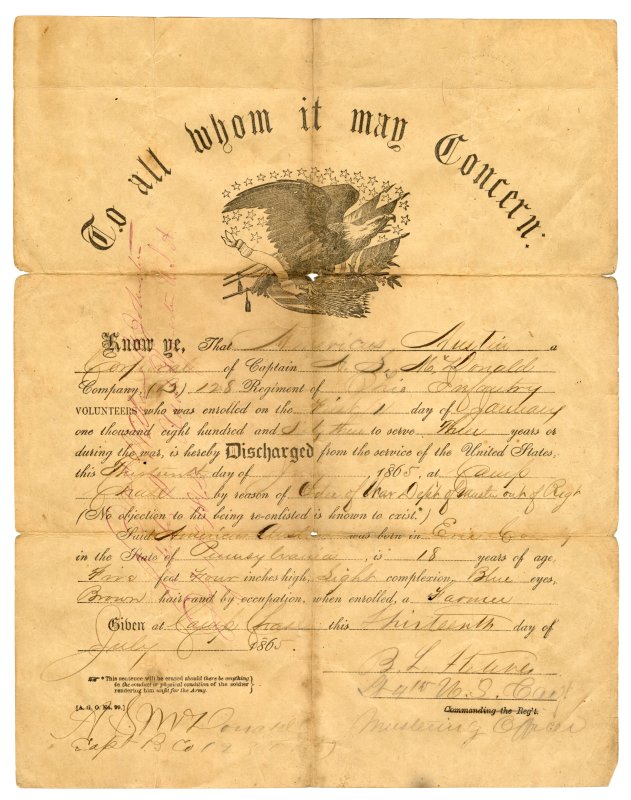 To all whom it may Concern:
Know ye, That Americus Austin a
Corporal of Captain McDonald
Company (B,) 128 Regiment of Ohio Infantry
VOLUNTEERS who was enrolled on the First 1 day of January
one thousand eight hundred and to serve Three years or
during the war, is hereby Discharged from the service of the United States,
this Thirteenth day of July 1865, at Camp
Chase by reason of Order of War Dept of Muster out of Regt
(No objection to his being re-enlisted is known to exist.*)
Said Americus Austin was born in Erie County
in the State of Pennsylvania, is 18 years of age,
Five feet Four inches high, Light complexion, Blue eyes,
Brown hair and by occupation, when enrolled, a Farmer
Given at Camp Chase this Thirteenth day of
July 1865.
* This sentence will be erased should there be anything
in the conduct or physical condition of the soldier
rendering him unfit for the Army.
[A. G. O. No. 99.]
Commanding the Reg't.
Mustering Officer
McDonald
Capt B Co